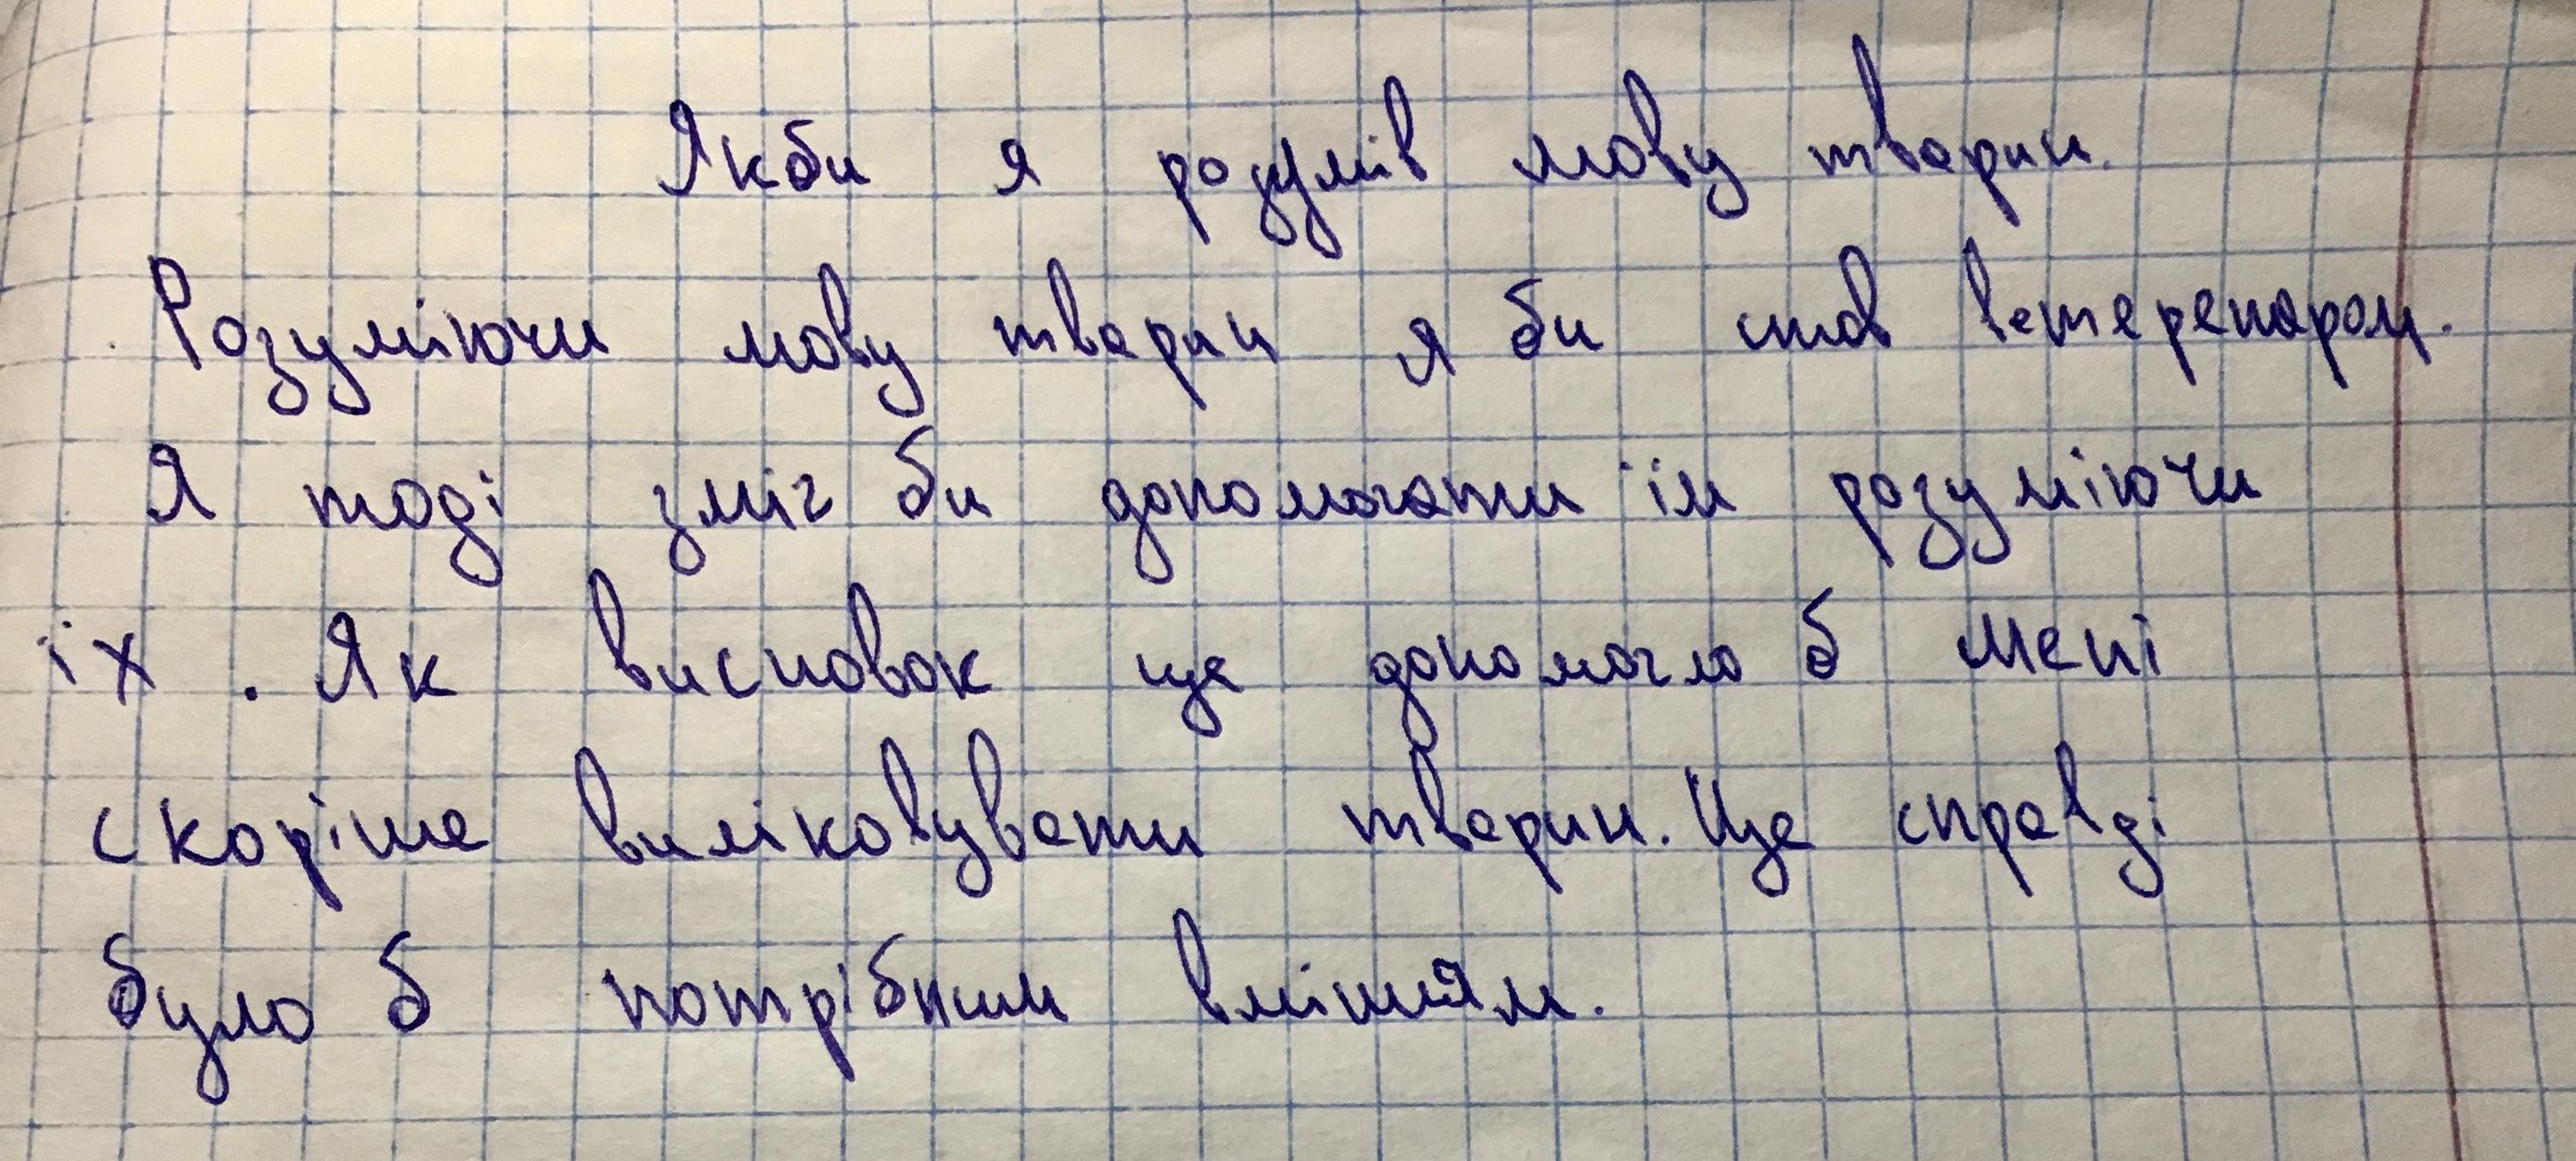 Якби я розумів мову тварин.
Розуміючи мову тварин я би став ветеренаром.
Я тоді зміг би допомогати їм розуміючи
їх. Як висновок це допомогло б мені
скоріше виліковувати тварин. Це справді
було б потрібним вмінням.